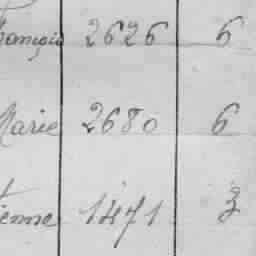 françois 2626 6
Marie 2680 6
ienne 1471 3